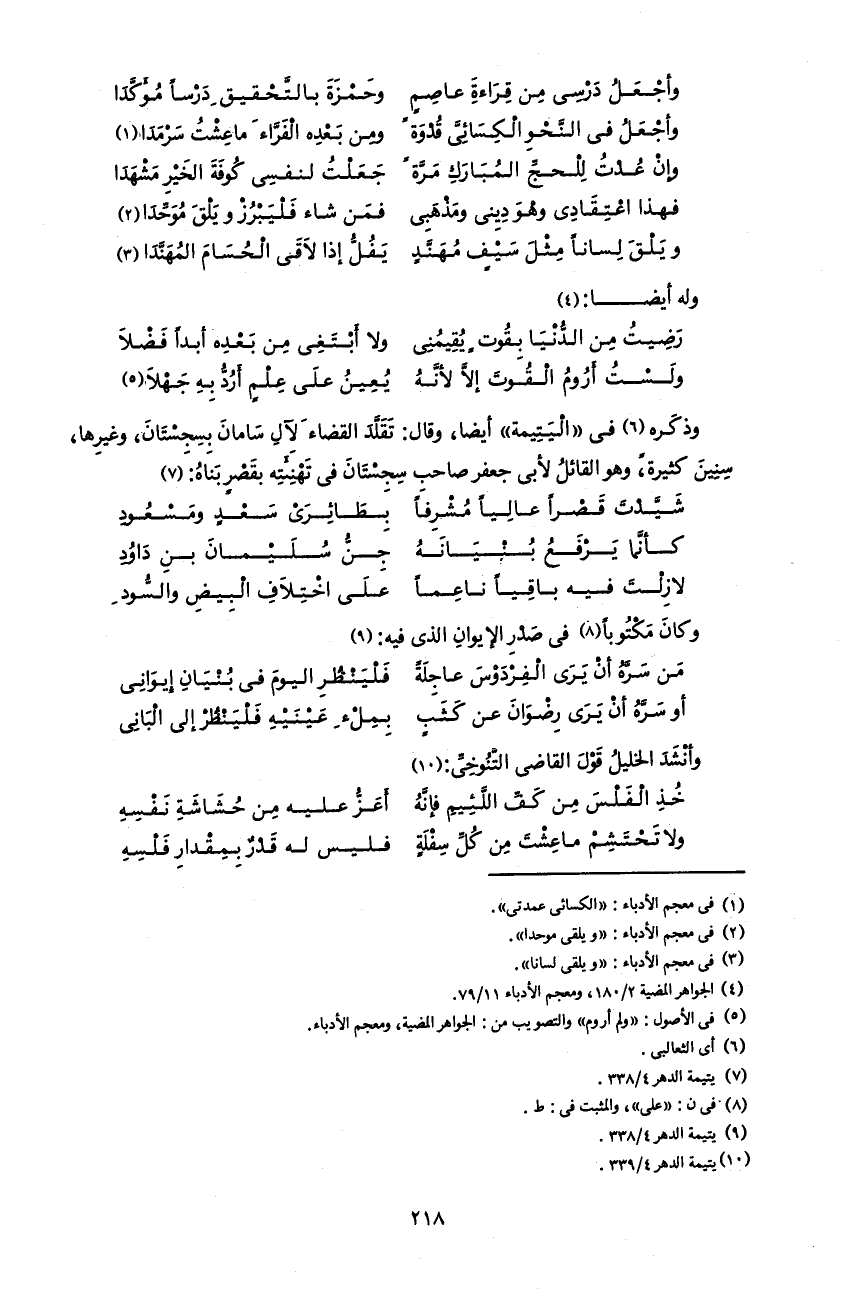 وأجْعَلُ دَرْسِى مِن قِرَاءةِ عاصِمٍ وحَمْزَةَ بالتَّحْقيقِ دَرْساً مُؤكَّدَا
وأجْعَلُ فى النَّحْوِ الْكِسَائىَّ قُدْوَةً ومِن بَعْدِه الْفَرَّاءَ ماعِشْتُ سَرْمَدَا(١)
وإنْ عُدْتُ لِلْحجِّ المُبَارَكِ مَرَّةً جَعَلْتُ لنفسِى كُوفَةَ الخَيْرِ مَشْهَدَا
فهذا اعْتِقَادِى وهْوَ دِينِى ومَذْهَبِى فمَن شاء فَلْيَبْرُزْ و يَلْقَ مُوَحِّدَا(٢)
و يَلْقَ لِساناً مِثْلَ سَيْفٍ مُهَنَّدٍ يَفُلُّ إذا لاَقَى الْحُسَامَ المُهَنَّدَا(٣)
وله أيضــا:(٤)
رَضِيتُ مِن الدُّنْيَا بِقُوتٍ يُقِيمُنِى ولا أَبْتَغِى مِن بَعْدِه أبداً فَضْلاَ
ولَسْتُ أَرُومُ الْقُوتَ إلاَّ لأنَّهُ يُعِينُ علَى عِلْمٍ أَرُدُّ بِهِ جَهْلاَ(٥)
وذكَره(٦) فى «الْيَتِيمة» أيضا، وقال: تَقَلَّدَ القضاءَ لآلِ سَامانَ بِسِجِسْتَانَ، وغيرِها،
سِنِينَ كثيرةً، وهو القائلُ لأبى جعفر صاحبِ سِجِسْتَانَ فى تَهْنِئَتِه بقَصْرٍ بَنَاهُ: (٧)
شَيَّدْتَ قَصْراً عالِياً مُشْرِفاً بِطَائِرَىْ سَعْدٍ ومَسْعُودِ
كأنَّما يَرْفَعُ بُنْيَانَهُ جِنُّ سُلَيْمانَ بنِ دَاوُدِ
لازِلْتَ فيه باقِياً ناعِماً علَى اخْتِلاَفِ الْبِيضِ والسُّودِ
وكانَ مَكْتُوباً(٨) فى صَدْرِ الإيوانِ الذى فيه: (٩)
مَن سَرَّهُ أنْ يَرَى الْفِرْدَوْسَ عاجِلَةً فَلْيَنْظُرِ اليومَ فى بُنْيَانِ إيوَانِى
أو سَرَّهُ أنْ يَرَى رِضْوَانَ عن كَثَبٍ بِمِلْءِ عَيْنَيْهِ فَلْيَنْظُرْ إلى الْبَانِى
وأنْشَد الخليلُ قَوْلَ القاضى التَّنُوخِىِّ:(١٠)
خُذِ الْفَلْسَ مِن كَفِّ اللَّئيمِ فإنَّهُ أَعَزُّ عليه مِن حُشَاشَةِ نَفْسِهِ
ولا تَحْتَشِمْ ماعِشْتَ مِن كُلِّ سِفْلَةٍ فليس له قَدْرٌ بِمِقْدارِ فَلْسِهِ
(١) فى معجم الأدباء : «الكسائى عمدتى».
(٢) فى معجم الأدباء : «و يلقى موحدا».
(٣) فى معجم الأدباء : «و يلقى لسانا».
(٤) الجواهر المضية ١٨٠/٢، ومعجم الأدباء ٧٩/١١.
(٥) فى الأصول : «ولم أروم» والتصويب من : الجواهر المضية، ومعجم الأدباء.
(٦) أى الثعالبى .
(٧) يتيمة الدهر ٣٣٨/٤ .
(٨) فى ن : «على»، والمثبت فى : ط .
(٩) يتيمة الدهر ٣٣٨/٤ .
(١٠) يتيمة الدهر ٣٣٩/٤ .
٢١٨